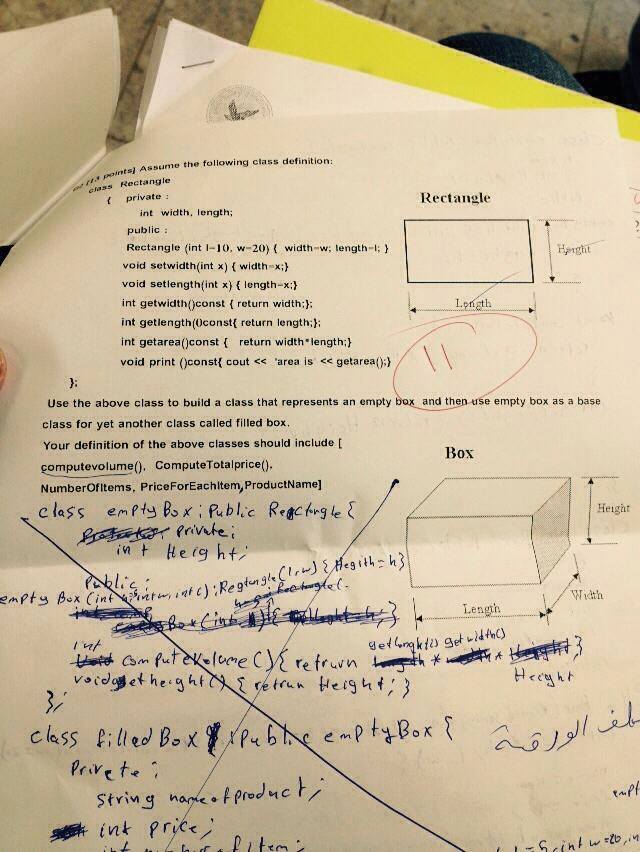 [13 points] Assume the following class definition:
class Rectangle
{ private :
int width, length;
public :
Rectangle (int l=10, w=20) { width=w; length=l; }
void setwidth(int x) { width=x;}
void setlength(int x) { length=x;}
int getwidth()const { return width;};
int getlength()const{ return length;};
int getarea()const { return width*length;}
void print ()const{ cout << 'area is' << getarea();}
};
Rectangle
Height
Length
11
Use the above class to build a class that represents an empty box and then use empty box as a base
class for yet another class called filled box.
Your definition of the above classes should include [
computevolume(), ComputeTotalprice(),
NumberOfItems, PriceForEachItem,ProductName]
Box
Height
Width
Length
class emptyBox : Public Rectangle {
Private :
int Height ;
Public :
empty Box (int h=5, int w, int l) : Regtangle (l, w) { Hegith = h }
int
computeVolume () { retrurn getlenght() * getwidth() * Height }
void getheight () { retrun Height ; }
};
class filledBox : public emptyBox {
Private :
String nameofproduct ;
int price ;
خلف الورقة
int w=20, in